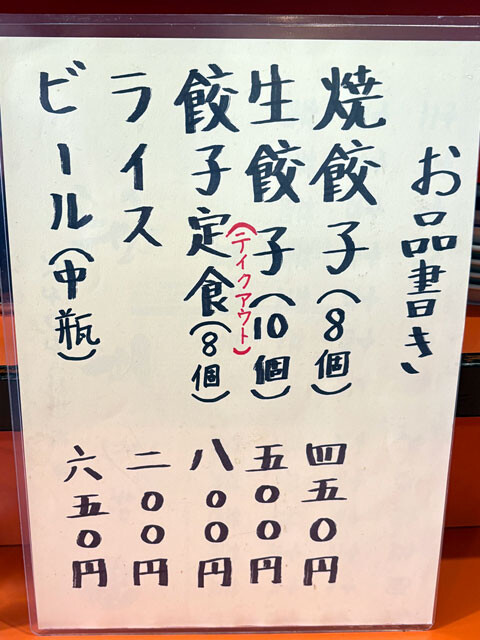 お品書き
焼餃子(8個) 四五〇円
生餃子(10個) 五〇〇円
(テイクアウト)
餃子定食(8個) 八〇〇円
ライス 二〇〇円
ビール(中瓶) 六五〇円